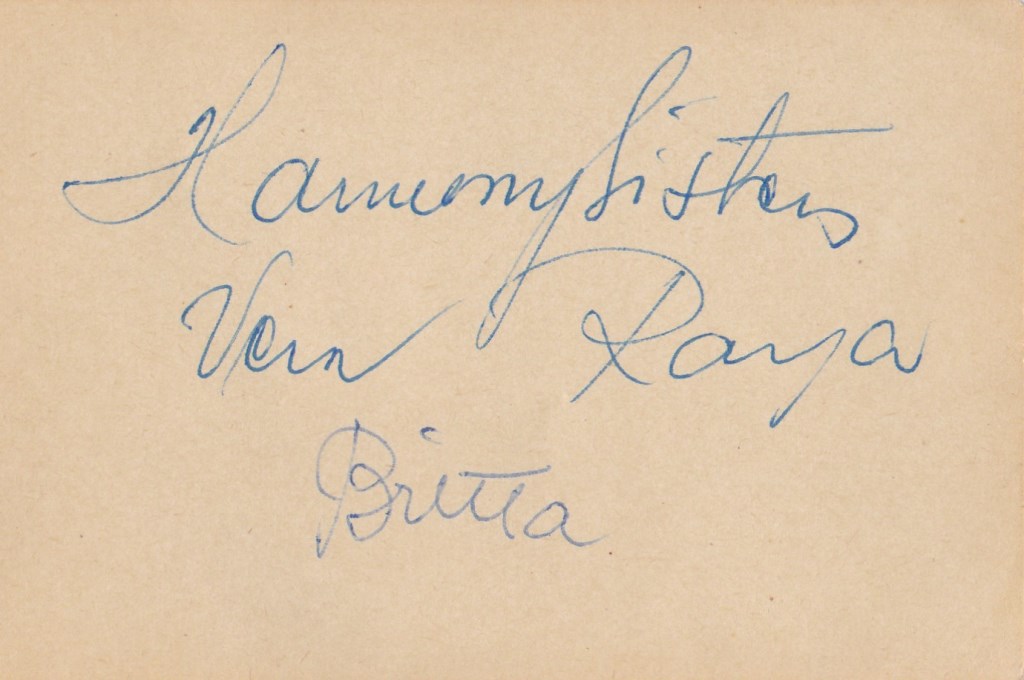 Harmony Sisters
Vera Raya
Britta